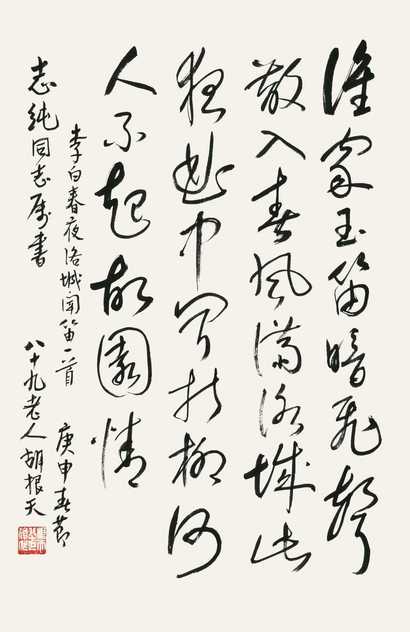 誰家玉笛暗飛聲
散入春風滿洛城此
夜曲中聞折柳何
人不起故園情
李白春夜洛城聞笛一首 庚申春節
志純同志属書 八十九老人胡根天